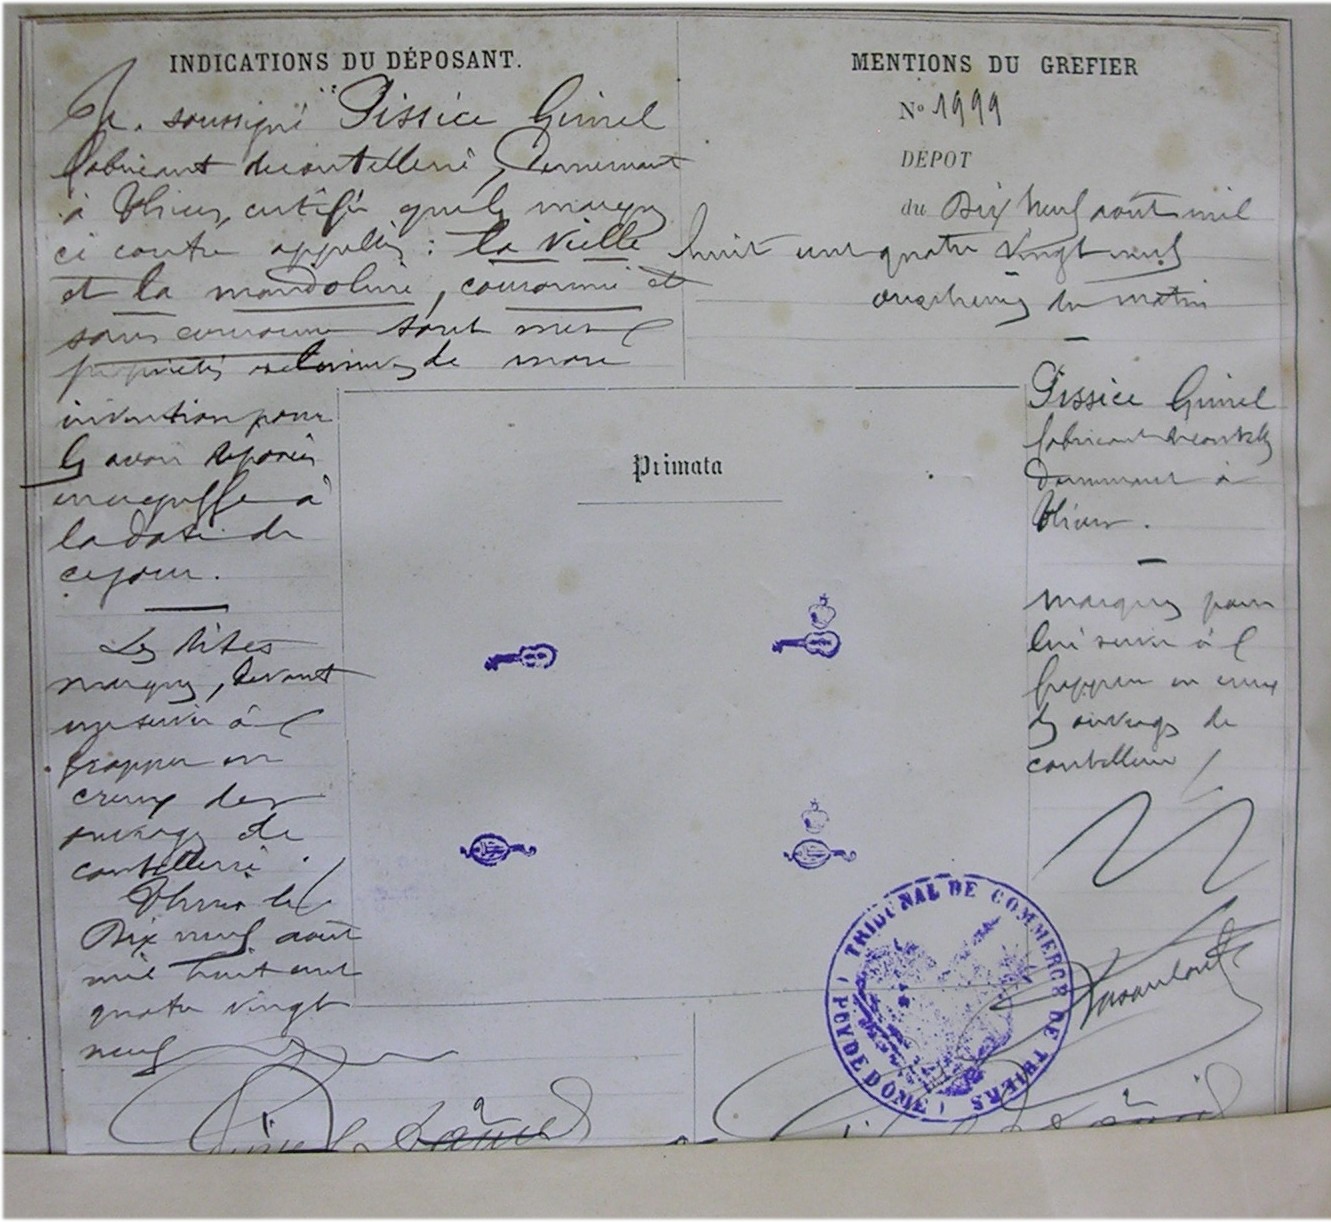 INDICATIONS DU DÉPOSANT.
Je soussigné Pissice Gimel
fabricant de coutellerie, Demeurant
à Thiers, certifie que les marques
ci contre appellées : la Vielle
et la mandoline, couronné et
sans couronne sont mes
propriétés de mon
invention pour
les avoir déposées
au greffe à
la date de
ce jour.
Les dites
marques, devant
me servir à
frapper en
creux des
ouvrages de
coutellerie.
Thiers le
Dix neuf août
mil huit cent
quatre vingt
neuf
MENTIONS DU GREFIER
No 1999
DÉPOT
du Dix Neuf août mil
huit cent quatre vingt neuf
onze heures du matin
Pissice Gimel
fabricant de coutellerie
Demeurant à
Thiers.
Marques pour
lui servir à
frapper en creux
des ouvrages de
coutellerie
Primata
TRIBUNAL DE COMMERCE DE THIERS
(PUY DE DOME)